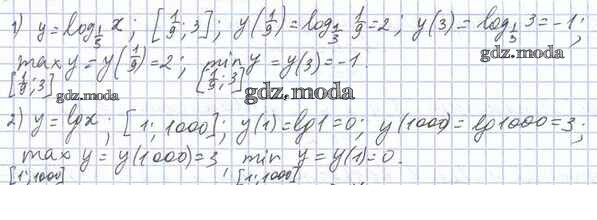 1) y = log_{1/3} x; [1/9; 3]; y(1/9) = log_{1/3} 1/9 = 2; y(3) = log_{1/3} 3 = -1;
max y = y(1/9) = 2; min y = y(3) = -1.
[1/9; 3] [1/9; 3]
gdz.moda gdz.moda
gdz.moda
2) y = lg x; [1; 1000]; y(1) = lg 1 = 0; y(1000) = lg 1000 = 3;
max y = y(1000) = 3, min y = y(1) = 0.
[1; 1000] [1; 1000]